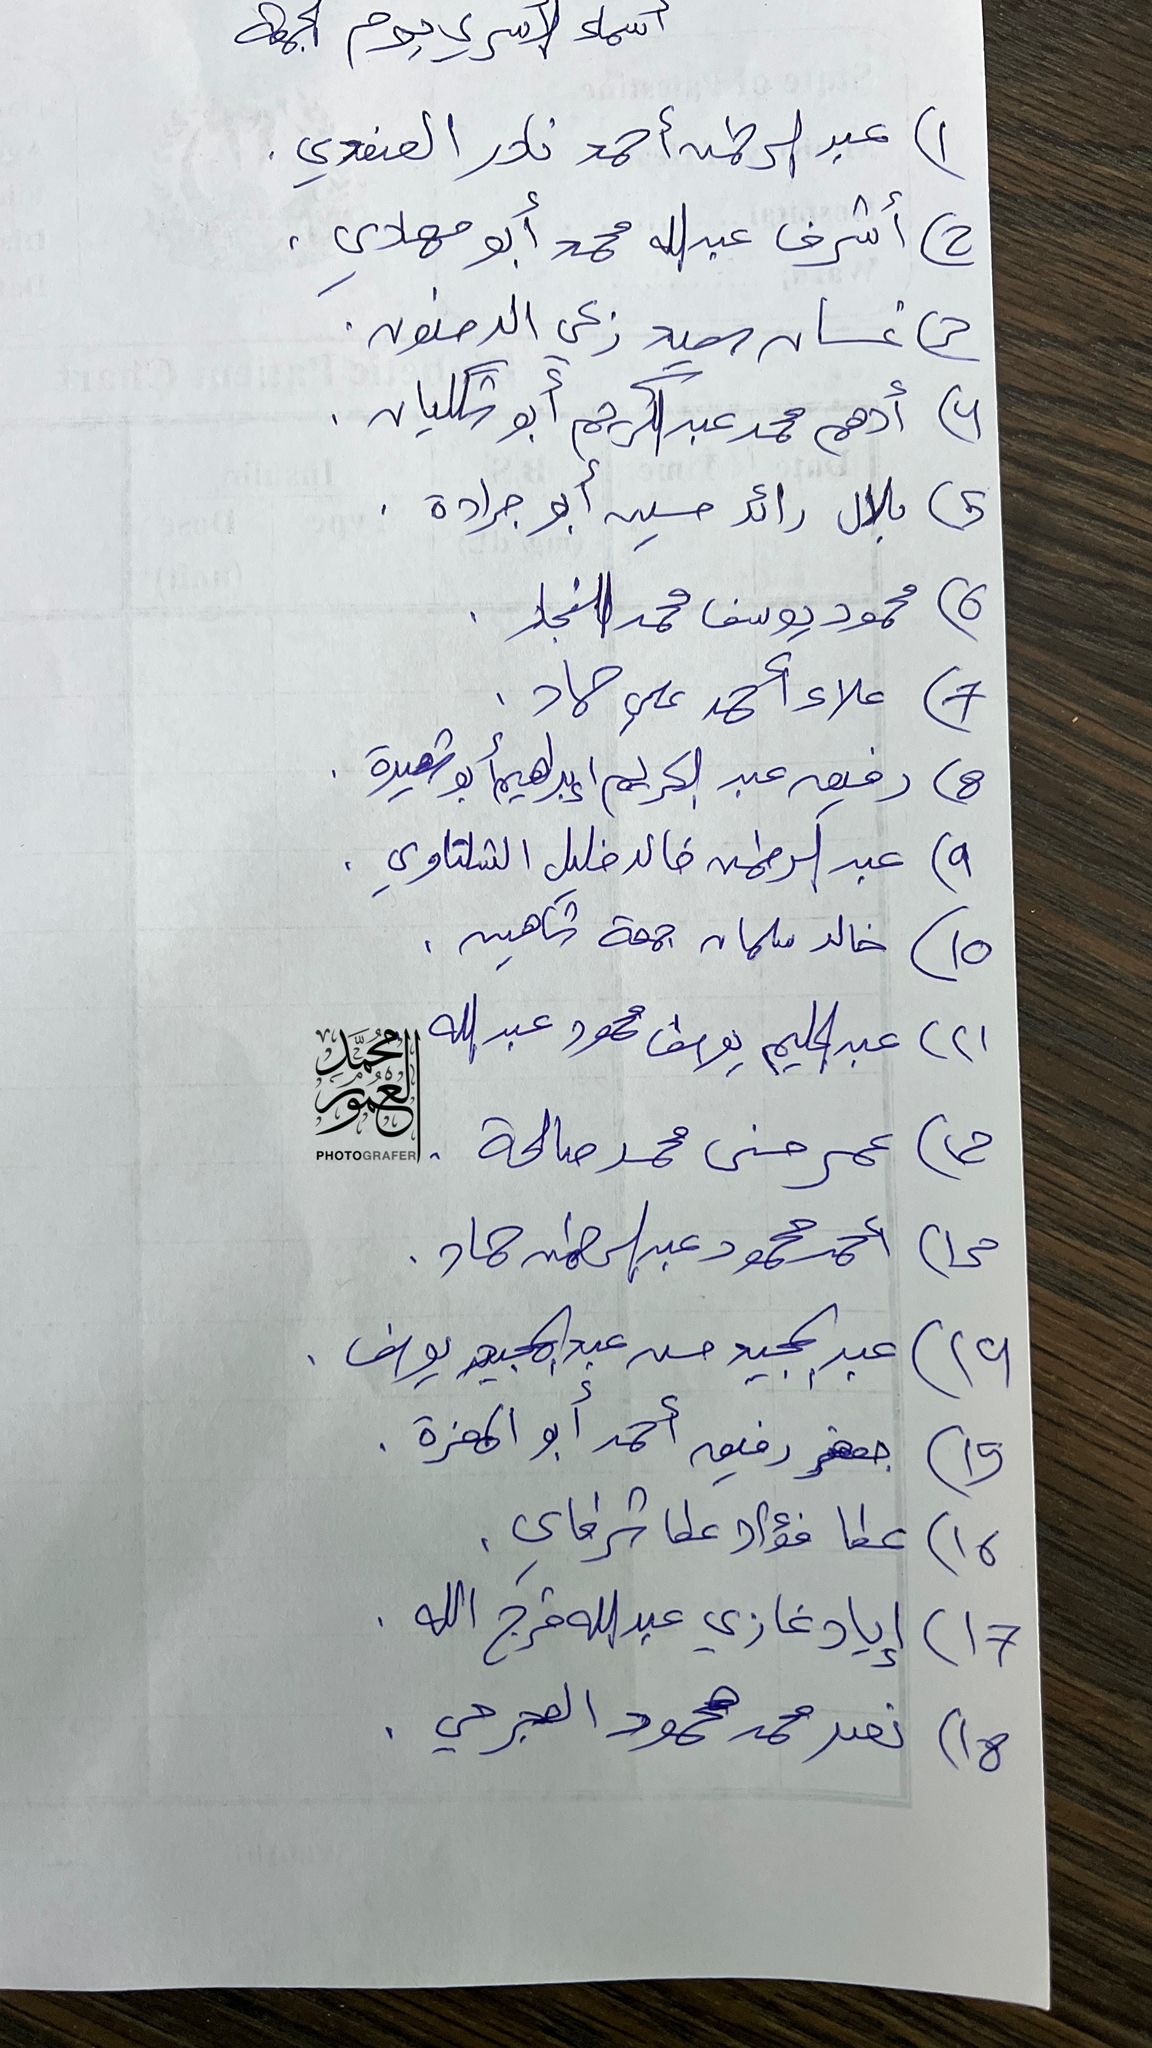 أسماء الأسرى يوم الجمعة
1) عبد الرحمن أحمد نادر العنقدي.
2) أشرف عبد الله محمد أبو مهادي.
3) غسان زعي الدحنون.
4) أدهم محمد عبد الكريم أبو شكليان.
5) بلال رائد حسين أبو جرادة.
6) محمود يوسف محمد النجار.
7) علاء أحمد علي حماد.
8) رفيق عبد الكريم إبراهيم أبو شعيرة.
9) عبد الرحمن خالد خليل الشلتاوي.
10) خالد سلمان جمعة شاهين.
11) عبد الحليم يوسف محمود عبد الله
12) عمر حسني محمد صالحة.
13) أحمد محمود عبد الرحمن حماد.
14) عبد المجيد حسن عبد المجيد يوسف.
15) جعفر رفيق أحمد أبو المعزة.
16) عطا فؤاد عطا شرفاي.
17) إياد غازي عبد الله فرج الله.
18) نصر محمد محمود
محمد
العمور
PHOTOGRAFER